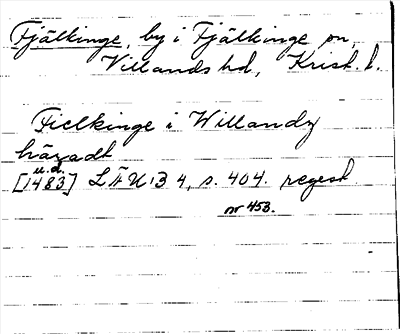 Fjälkinge, by i Fjälkinge sn,
Villands hd, Krist. l.
Fielkinge i Willandz
häradt
u.d.
[1483] LÄUB 4, s. 404. regest
nr 453.